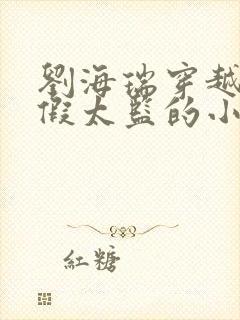 劉海瑞穿越
假太監的小
紅糖